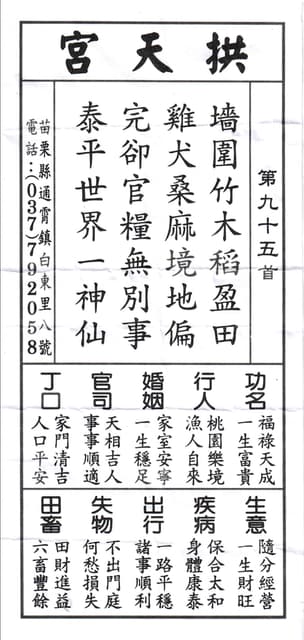 拱天宮
第九十五首
墻圍竹木稻盈田
雞犬桑麻境地偏
完卻官糧無別事
泰平世界一神仙
苗栗縣通霄鎮白東里八號
電話：(037)792058
功名
福祿天成
一生富貴
行人
桃園樂境
漁人自來
婚姻
家室安寧
一生穩足
官司
天相吉人
事事順適
丁口
家門清吉
人口平安
生意
隨分經營
一生財旺
疾病
保合太和
身體康泰
出行
一路平穩
諸事順利
失物
不出門庭
何愁損失
田畜
田財進益
六畜豐餘